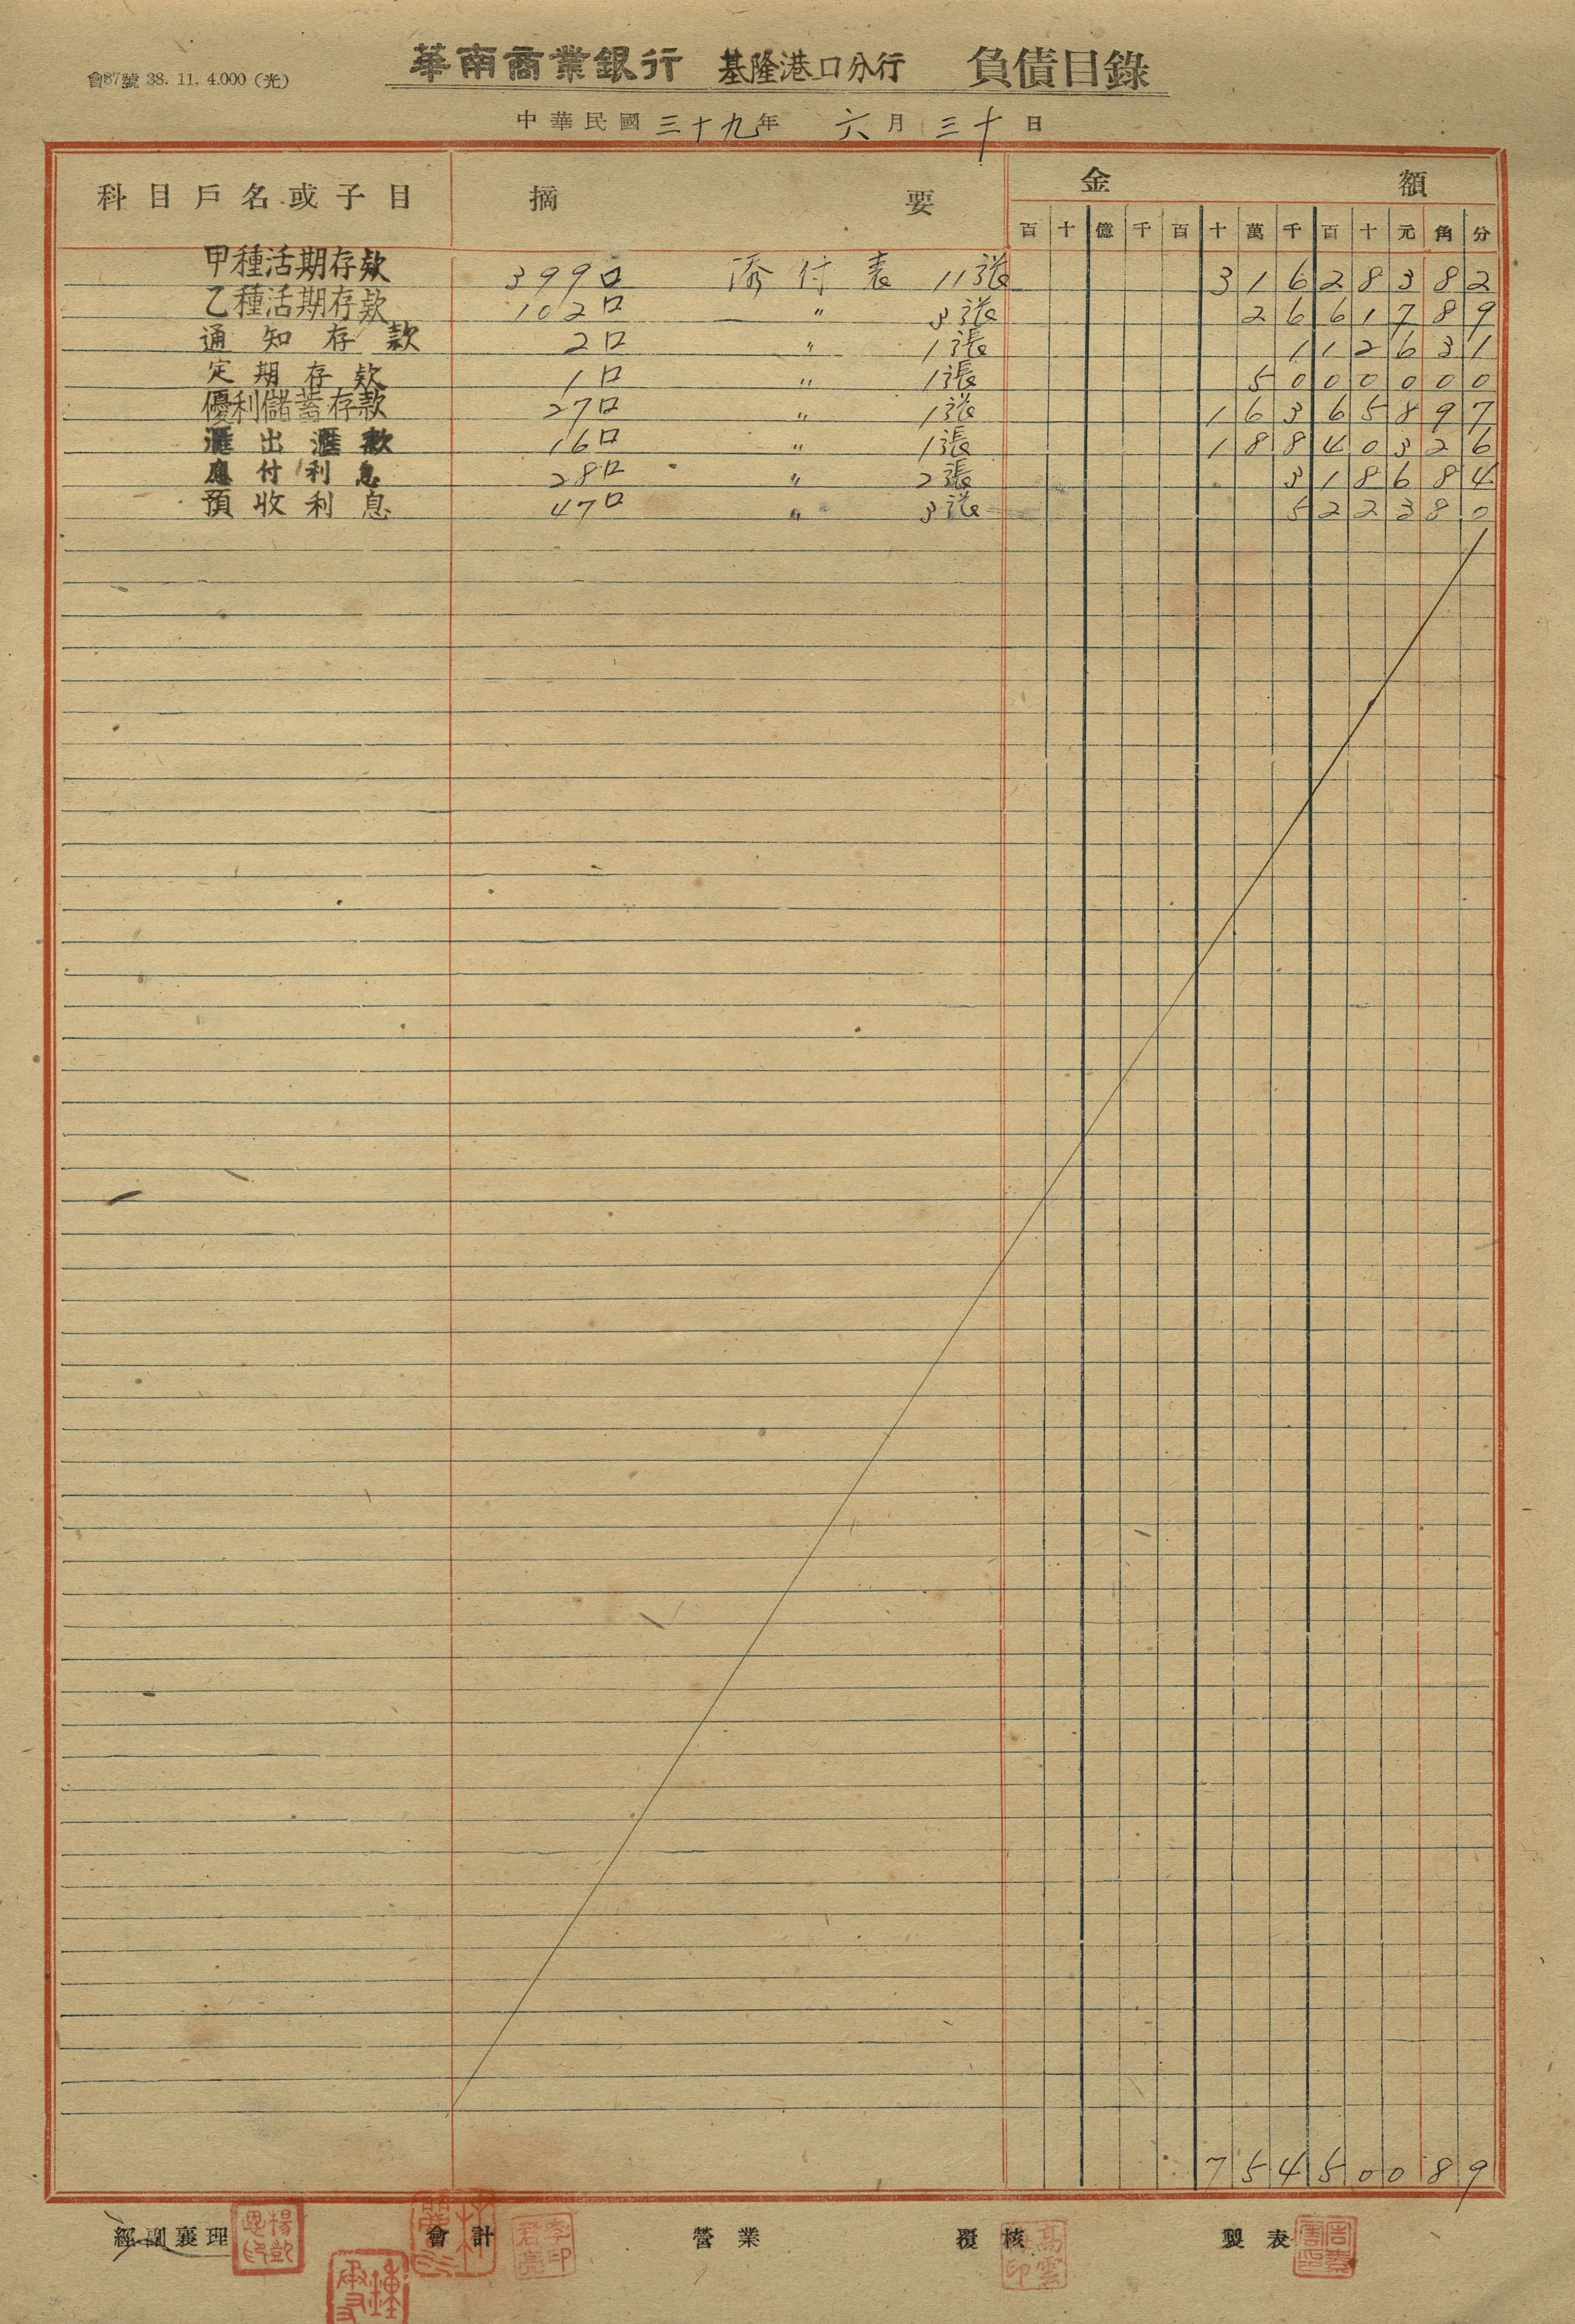 會87號 38. 11. 4.000 (光)
華南商業銀行 基隆港口分行 負債目錄
中華民國三十九年 六月三十日
科目戶名或子目 摘要 金額
百 十 億 千 百 十 萬 千 百 十 元 角 分
甲種活期存款 399口 添付表 11張 3 1 6 2 8 3 8 2
乙種活期存款 102口 〃 3張 2 6 6 1 7 8 9
通知存款 2口 〃 1張 1 1 2 6 3 1
定期存款 1口 〃 1張 5 0 0 0 0 0 0
優利儲蓄存款 27口 〃 1張 1 6 3 6 5 8 9 7
滙出滙款 16口 〃 1張 1 8 8 4 0 3 2 6
應付利息 28口 〃 2張 3 1 8 6 8 4
預收利息 47口 〃 3張 5 2 2 3 8 0
7 5 4 5 0 0 8 9
經副襄理 會計 營業 覆核 製表